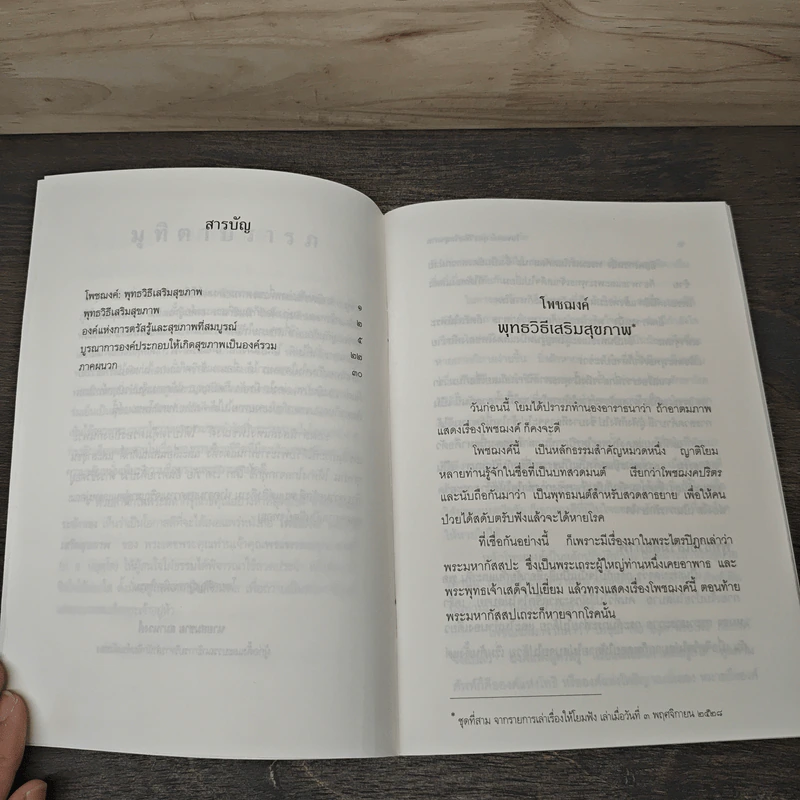 สารบัญ
โพชฌงค์: พุทธวิธีเสริมสุขภาพ ๑
พุทธวิธีเสริมสุขภาพ ๒
องค์แห่งการตรัสรู้และสุขภาพที่สมบูรณ์ ๕
บูรณาการองค์ประกอบให้เกิดสุขภาพเป็นองค์รวม ๒๒
ภาคผนวก ๓๐
โพชฌงค์
พุทธวิธีเสริมสุขภาพ*
วันก่อนนี้ โยมได้ปรารภทำนองอาราธนาว่า ถ้าอาตมภาพ
แสดงเรื่องโพชฌงค์ ก็คงจะดี
โพชฌงค์นี้ เป็นหลักธรรมสำคัญหมวดหนึ่ง ญาติโยม
หลายท่านรู้จักในชื่อที่เป็นบทสวดมนต์ เรียกว่าโพชฌงคปริตร
และนับถือกันมาว่า เป็นพุทธมนต์สำหรับสวดสาธยาย เพื่อให้คน
ป่วยได้สดับตรับฟังแล้วจะได้หายโรค
ที่เชื่อกันอย่างนี้ ก็เพราะมีเรื่องมาในพระไตรปิฎกเล่าว่า
พระมหากัสสปะ ซึ่งเป็นพระเถระผู้ใหญ่ท่านหนึ่งเคยอาพาธ และ
พระพุทธเจ้าเสด็จไปเยี่ยม แล้วทรงแสดงเรื่องโพชฌงค์นี้ ตอนท้าย
พระมหากัสสปเถระก็หายจากโรคนั้น
* ชุดที่สาม จากรายการเล่าเรื่องให้โยมฟัง เล่าเมื่อวันที่ ๓ พฤศจิกายน ๒๕๒๘